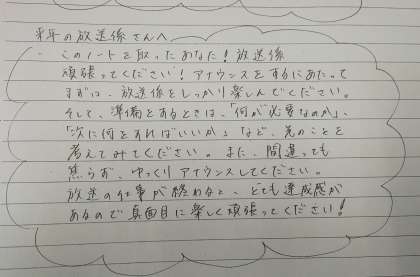 来年の放送係さんへ
・このノートを取ったあなた！放送係
頑張ってください！アナウンスをするにあたって
まずは、放送係をしっかり楽しんでください。
そして、準備をするときは、「何が必要なのか」、
「次に何をすればいいか」など、先のことを
考えてみてください。また、間違っても
焦らず、ゆっくりアナウンスしてください。
放送の仕事が終わると、とても達成感が
あるので真面目に楽しく頑張ってください！